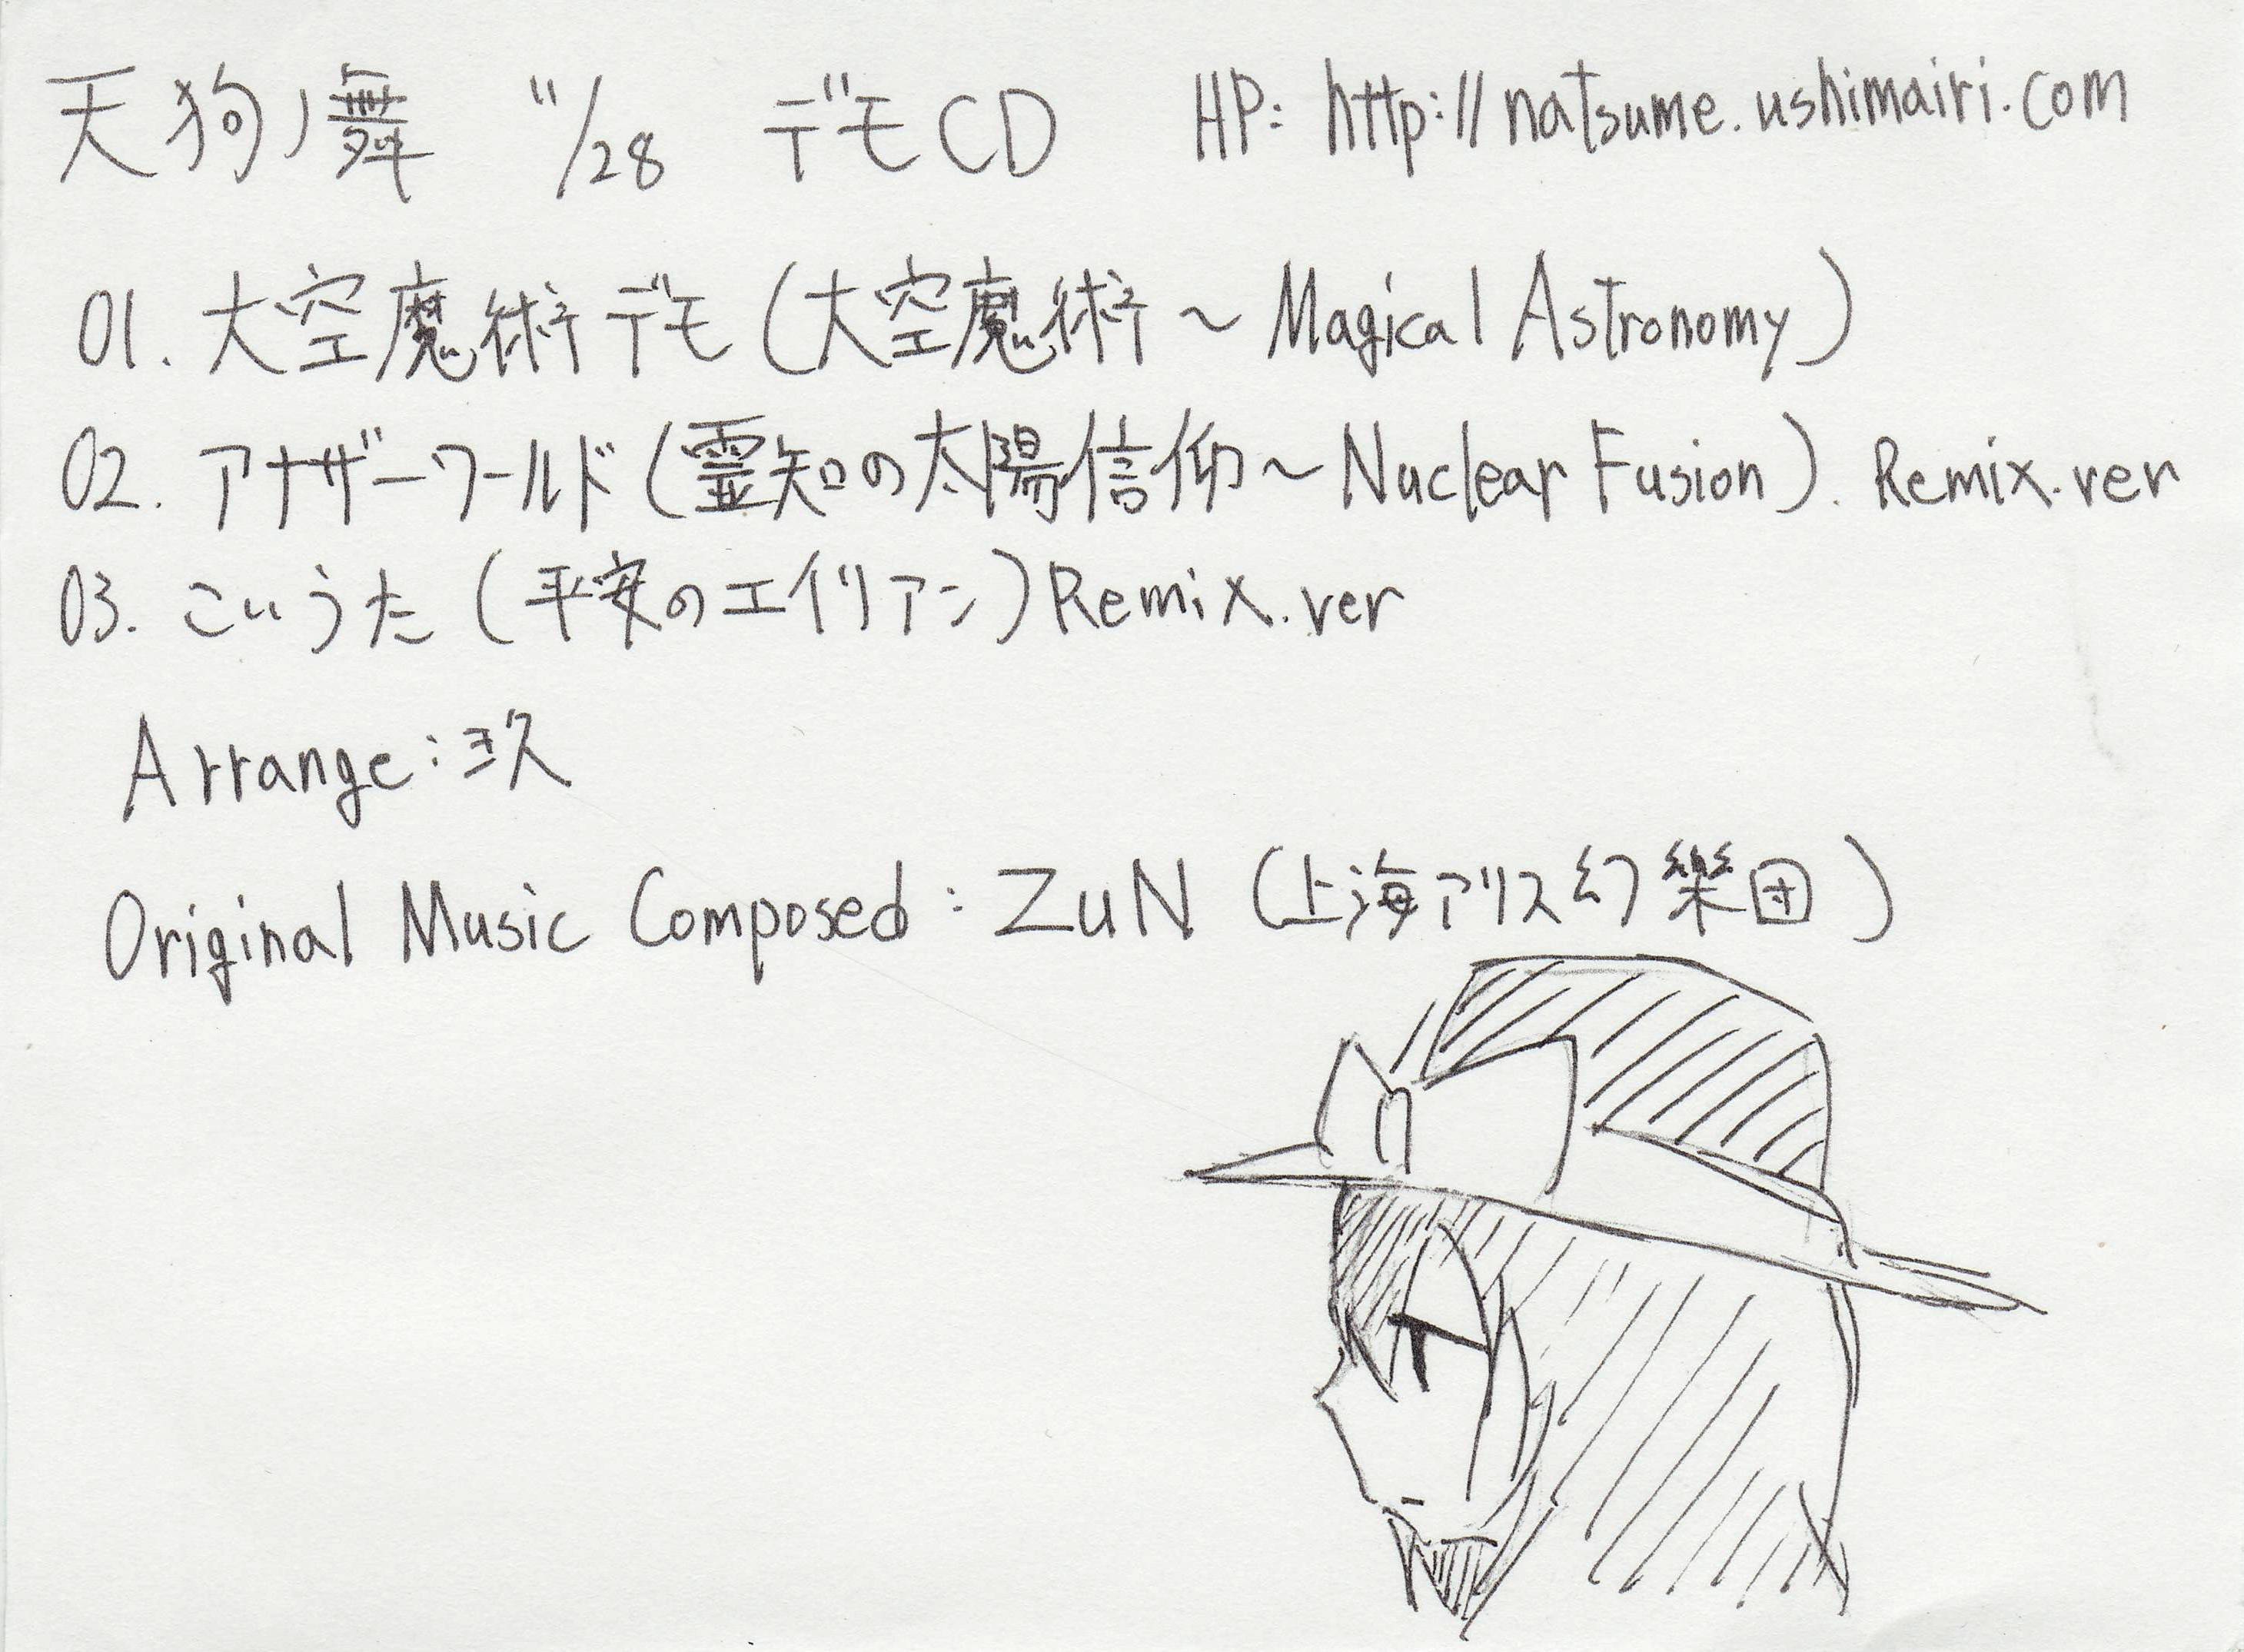 天狗ノ舞 11/28 デモCD HP: http://natsume.ushimairi.com
01. 大空魔術デモ (大空魔術~Magical Astronomy)
02. アナザーワールド (霊知の太陽信仰~Nuclear Fusion). Remix.ver
03. こいうた (平安のエイリアン) Remix.ver
Arrange:
Original Music Composed : ZUN (上海アリス幻樂団)